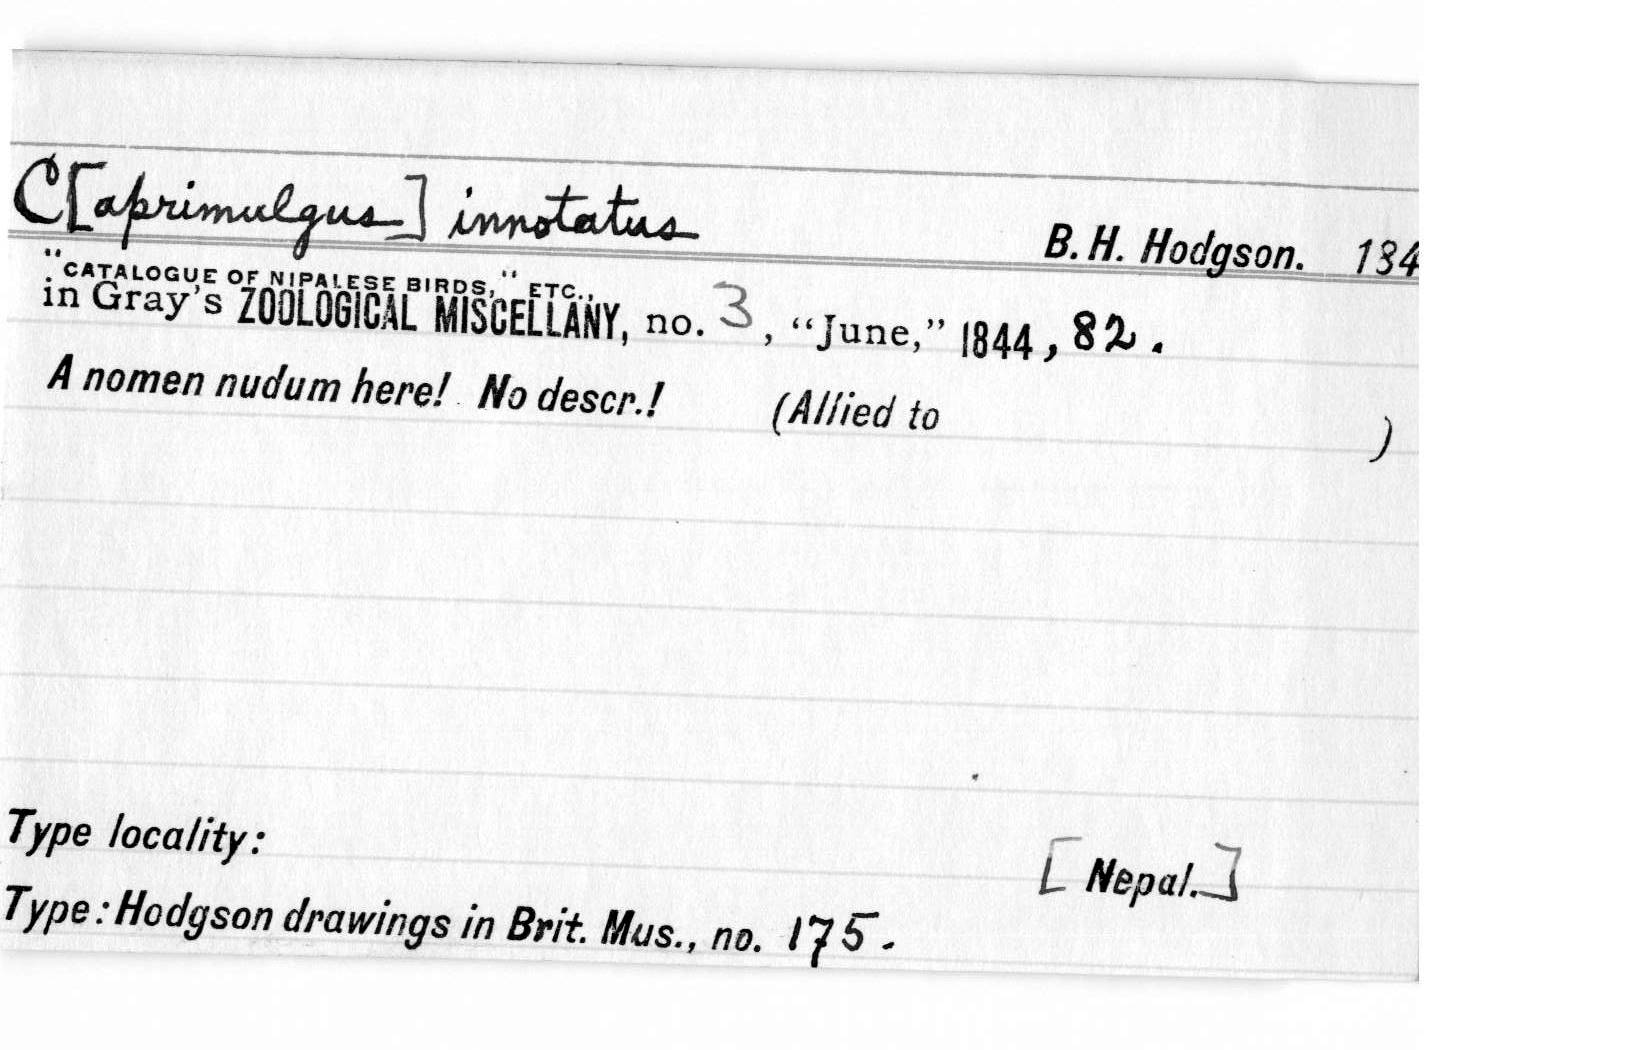 C[aprimulgus] innotatus B. H. Hodgson. 184
"CATALOGUE OF NIPALESE BIRDS," ETC.,
in Gray's ZOOLOGICAL MISCELLANY, no. 3, "June," 1844, 82.
A nomen nudum here! No descr.! (Allied to )
Type locality: [Nepal.]
Type: Hodgson drawings in Brit. Mus., no. 175.